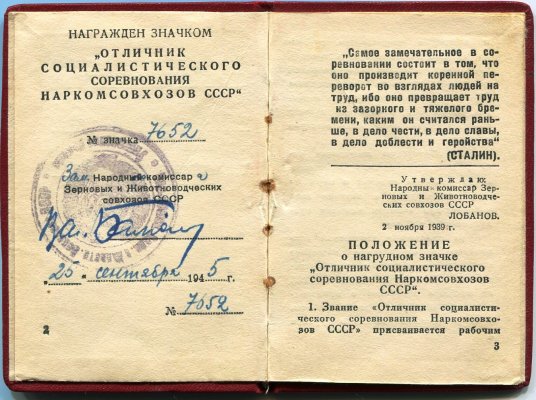 НАГРАЖДЕН ЗНАЧКОМ
„ОТЛИЧНИК
СОЦИАЛИСТИЧЕСКОГО
СОРЕВНОВАНИЯ
НАРКОМСОВХОЗОВ СССР“
№ значка 7652
Зам. Народный комиссар а
Зерновых и Животноводческих
совхозов СССР
„25“ сентября 1945 г.
№ 7652
2
„Самое замечательное в со-
ревновании состоит в том, что
оно производит коренной пе-
реворот во взглядах людей на
труд, ибо оно превращает труд
из зазорного и тяжолого бре-
мени, каким он считался рань-
ше, в дело чести, в дело славы,
в дело доблести и геройства“
(СТАЛИН).
Утверждаю:
Народный комиссар Зер-
новых и Животноводче-
ских совхозов СССР
ЛОБАНОВ.
2 ноября 1939 г.
ПОЛОЖЕНИЕ
о нагрудном значке
„Отличник социалистического
соревнования Наркомсовхозов
СССР“.
1. Звание «Отличник социалисти-
ческого соревнования Наркомсовхо-
зов СССР» присваивается рабочим
3